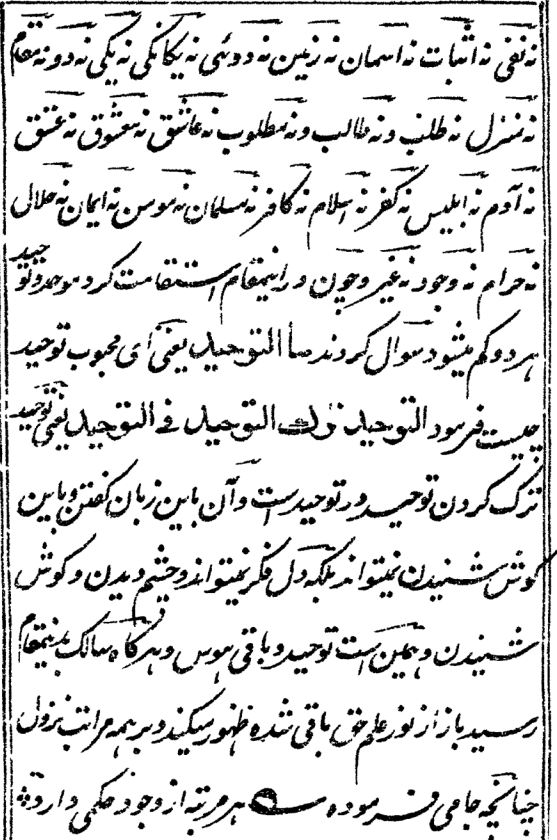 نه نفی نه اثبات نه اسمان نه زمین نه دوئی نه یکانکی نه یکی نه دو نه مقام
نه منزل نه طلب و نه طالب و نه مطلوب نه عاشق نه معشوق نه عشق
نه آدم نه ابلیس نه کفر نه اسلام نه کافر نه مسلمان نه مومن نه ایمان نه حلال
نه حرام نه وجود نه غیر وچون درانیمقام استقامت کرد موحد و توحید
هر دو کم میشود سوال کردند ما التوحید یعنی ای محبوب توحید
چیست فرمود التوحید ترك التوحید فے التوحید یعنی توحید
ترک کردن توحید در توحیدست وآن باین زبان کفتن و باین
کوش شنیدن نمیتواند بلکه دل فکر نمیتواند وچشم دیدن و کوش
شنیدن وهمین است توحید و باقی هوس وهرکاه سالک بدینمقام
رسید باز از نور علم حق باقی شده ظهور میکند و بر همه مراتب نزول
چنانچه جامی فرموده هر مرتبه از وجود حکمی دارد